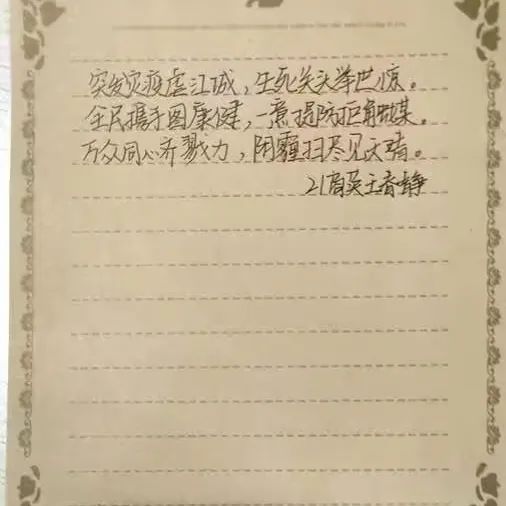 突发灾疫虐江城，生死关头举世惊。
全民携手图康健，一意提防拒触媒。
万众同心齐戮力，阴霾扫尽见文靖。
21高英王春静